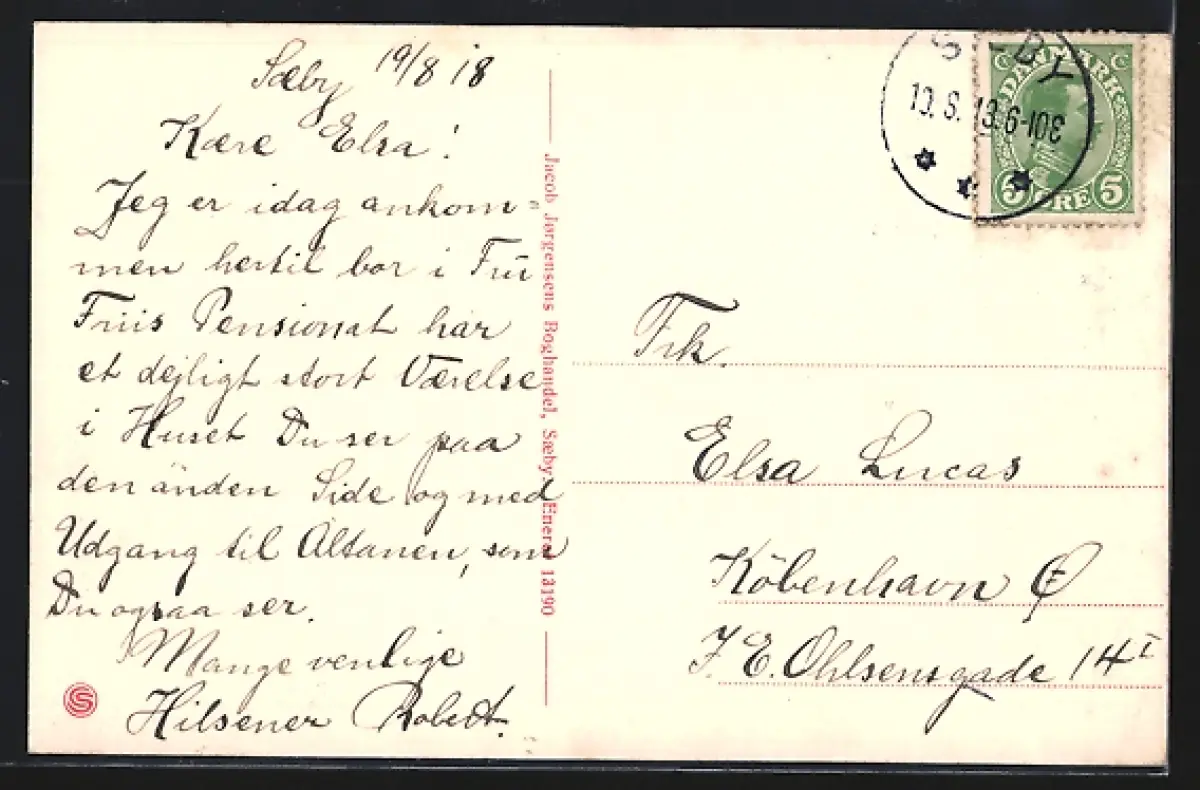 Sæby 19/8 18
Kære Elsa!
Jeg er idag ankom=
men hertil bor i Fru
Friis Pensionat har
et dejligt stort Værelse
i Huset Du ser paa
den anden Side og med
Udgang til Altanen, som
Du ogsaa ser.
Mange venlige
Hilsener Robert.
Jacob Jørgensens Boghandel, Sæby. Eneret 13190
DANMARK
5 ØRE 5
Frk.
Elsa Lucas
København Ø
J. E. Ohlsensgade 14 I